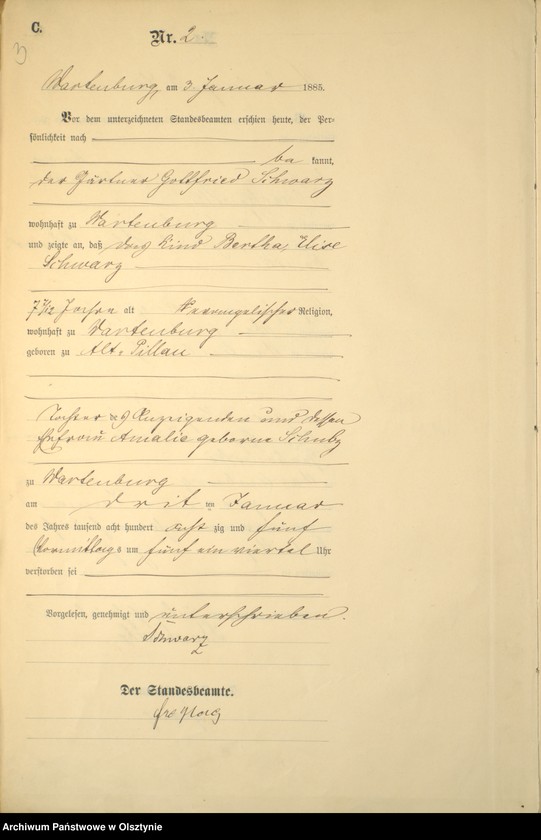 C.
3
Nr. 2
Wartenburg, am 3 Januar 1885.
Vor dem unterzeichneten Standesbeamten erschien heute, der Per-
sönlichkeit nach
be kannt,
der Gärtner Gottfried Schwarz
wohnhaft zu Wartenburg
und zeigte an, daß das Kind Bertha, Elise
Schwarz
7 1/12 Jahre alt evangelischer Religion,
wohnhaft zu Wartenburg
geboren zu Alt-Pillau
Tochter des Anzeigenden und dessen
Ehefrau Amalie geborne
zu Wartenburg
am drit ten Januar
des Jahres tausend acht hundert acht zig und fünf
Vormittags um fünf ein viertel Uhr
verstorben sei
Vorgelesen, genehmigt und unterschrieben.
Schwarz
Der Standesbeamte.
Archiwum Państwowe w Olsztynie